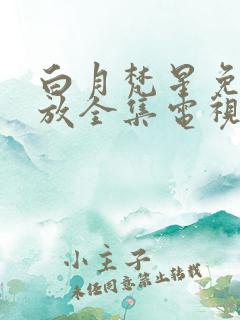 白月梵星免
放全集電視
小主子
未经同意禁止转载